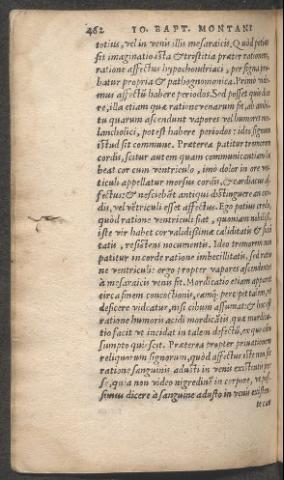 462 IO. BAPT. MONTANI
totius, vel in venis illis mesaraicis. Quòd potius
sit imaginatio &
ratione affectus hypochondriaci, per signa
batur propria & pathognomonica. Primò
mus affectũ habere periodos. Sed posset quis dice
re, illa etiam quæ ratione venarum fit, ab
tu quarum ascendunt vapores vel humores me
lancholici, potest habere periodos: ideo signum
istud sit commune. Præterea patitur tremorem
cordis, scitur autem quam communicantiam ha
beat cor cum ventriculo, imò dolor in ore ven
triculi appellatur morsus cordis, & cardiacus af
fectus: & nosciebãt antiqui distinguere an cor
dis, vel vẽtriculi esset affectus. Ego potius credo,
quòd ratione ventriculi fiat, quoniam
iste vir habet cor validissimæ caliditatis &
tatis, resistens nocumentis. Ideo tremorem non
patitur in corde ratione imbecillitatis, sed ratio
ne ventriculi: ergo propter vapores ascendentes
à mesaraicis venis fit. Mordicatio etiam apparet
circa finem concoctionis,
deficere videatur, nisi cibum assumat: & hoc fit
ratione humoris acidi mordicãtis, quæ mordica
tio facit ut incidat in talem defectũ, ex quo cibo
sumpto quiescit. Præterea propter privationem
reliquorum signorum, quòd affectus iste non fit
ratione sanguinis adusti in venis existentis per
se, quia non video nigredinẽ in corpore, ut pos
simus dicere à sanguine adusto in venis existen